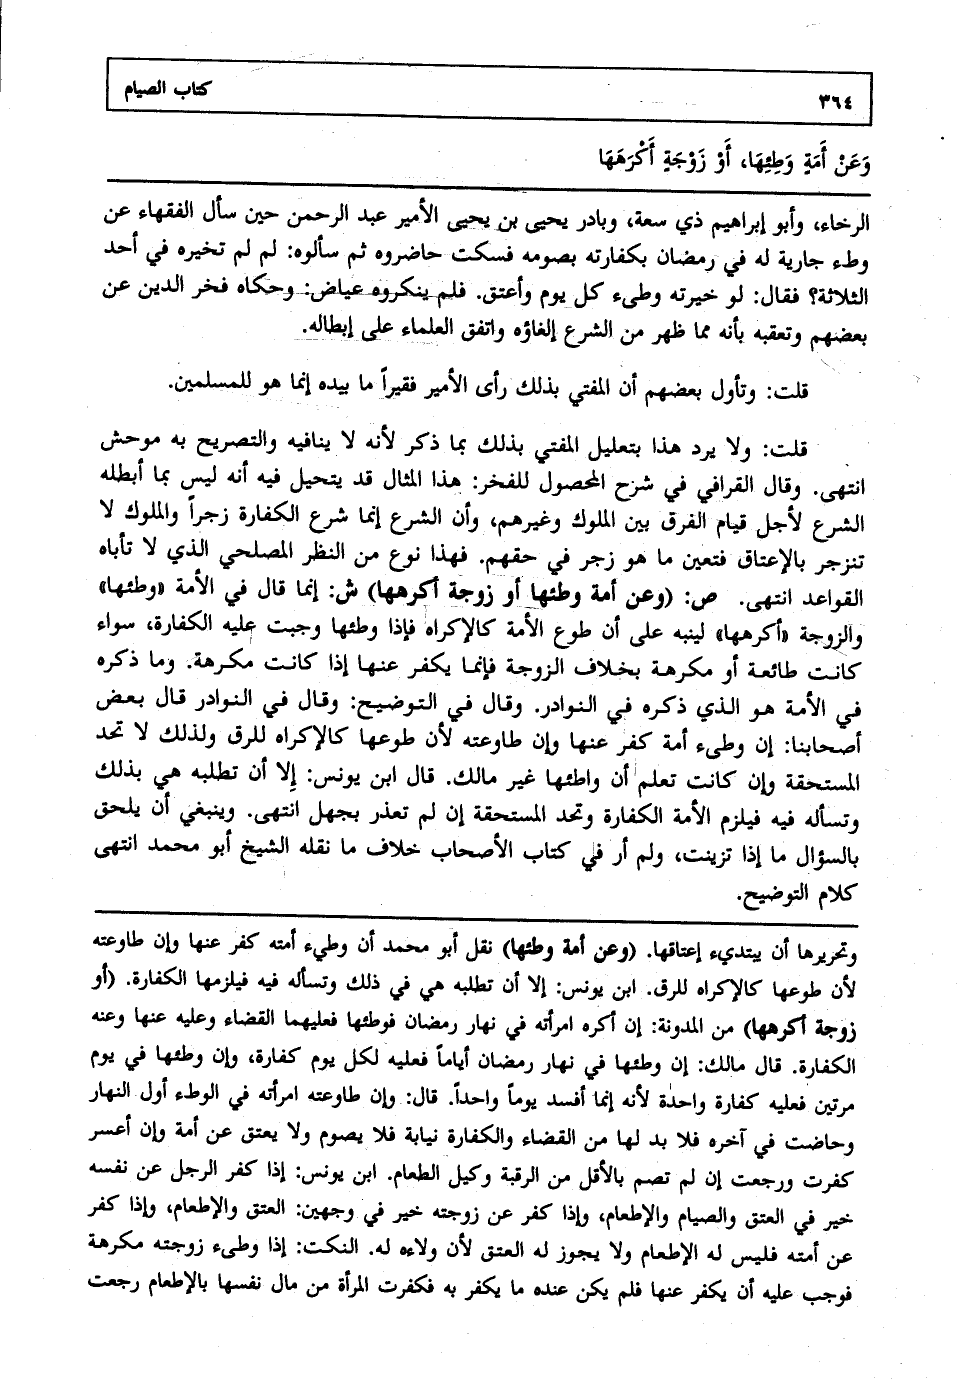 ٣٦٤ كتاب الصيام
وَعَنْ أَمَةٍ وَطِئِهَا، أَوْ زَوْجَةٍ أَكْرَهَهَا
الرخاء، وأبو إبراهيم ذي سعة، وبادر يحيى بن يحيى الأمير عبد الرحمن حين سأل الفقهاء عن
وطء جارية له في رمضان بكفارته بصومه فسكت حاضروه ثم سألوه: لم لم تخيره في أحد
الثلاثة؟ فقال: لو خيرته وطىء كل يوم وأعتق. فلم ينكروه عياض: وحكاه فخر الدين عن
بعضهم وتعقبه بأنه مما ظهر من الشرع إلغاؤه واتفق العلماء على إبطاله.
قلت: وتأول بعضهم أن المفتي بذلك رأى الأمير فقيراً ما بيده إنما هو للمسلمين.
قلت: ولا يرد هذا بتعليل المفتي بذلك بما ذكر لأنه لا ينافيه والتصريح به موحش
انتهى. وقال القرافي في شرح المحصول للفخر: هذا المثال قد يتحيل فيه أنه ليس بما أبطله
الشرع لأجل قيام الفرق بين الملوك وغيرهم، وأن الشرع إنما شرع الكفارة زجراً والملوك لا
تنزجر بالإعتاق فتعين ما هو زجر في حقهم. فهذا نوع من النظر المصلحي الذي لا تأباه
القواعد انتهى. ص: (وعن أمة وطئها أو زوجة أكرهها) ش: إنما قال في الأمة «وطئها»
والزوجة «أكرهها» لينبه على أن طوع الأمة كالإكراه فإذا وطئها وجبت عليه الكفارة، سواء
كانت طائعة أو مكرهة بخلاف الزوجة فإنما يكفر عنها إذا كانت مكرهة. وما ذكره
في الأمة هو الذي ذكره في النوادر. وقال في التوضيح: وقال في النوادر قال بعض
أصحابنا: إن وطىء أمة كفر عنها وإن طاوعته لأن طوعها كالإكراه للرق ولذلك لا تحد
المستحقة وإن كانت تعلم أن واطئها غير مالك. قال ابن يونس: إلا أن تطلبه هي بذلك
وتسأله فيه فيلزم الأمة الكفارة وتحد المستحقة إن لم تعذر بجهل انتهى. وينبغي أن يلحق
بالسؤال ما إذا تزينت، ولم أر في كتاب الأصحاب خلاف ما نقله الشيخ أبو محمد انتهى
كلام التوضيح.
وتحريرها أن يبتديء إعتاقها. (وعن أمة وطئها) نقل أبو محمد أن وطيء أمته كفر عنها وإن طاوعته
لأن طوعها كالإكراه للرق. ابن يونس: إلا أن تطلبه هي في ذلك وتسأله فيه فيلزمها الكفارة. (أو
زوجة أكرهها) من المدونة: إن أكره امرأته في نهار رمضان فوطئها فعليهما القضاء وعليه عنها وعنه
الكفارة. قال مالك: إن وطئها في نهار رمضان أياماً فعليه لكل يوم كفارة، وإن وطئها في يوم
مرتين فعليه كفارة واحدة لأنه إنما أفسد يوماً واحداً. قال: وإن طاوعته امرأته في الوطء أول النهار
وحاضت في آخره فلا بد لها من القضاء والكفارة نيابة فلا يصوم ولا يعتق عن أمة وإن أعسر
كفرت ورجعت إن لم تصم بالأقل من الرقبة وكيل الطعام. ابن يونس: إذا كفر الرجل عن نفسه
خير في العتق والصيام والإطعام، وإذا كفر عن زوجته خير في وجهين: العتق والإطعام، وإذا كفر
عن أمته فليس له إلا الإطعام ولا يجوز له العتق لأن ولاءه له. النكت: إذا وطىء زوجته مكرهة
فوجب عليه أن يكفر عنها فلم يكن عنده ما يكفر به فكفرت المرأة من مال نفسها بالإطعام رجعت